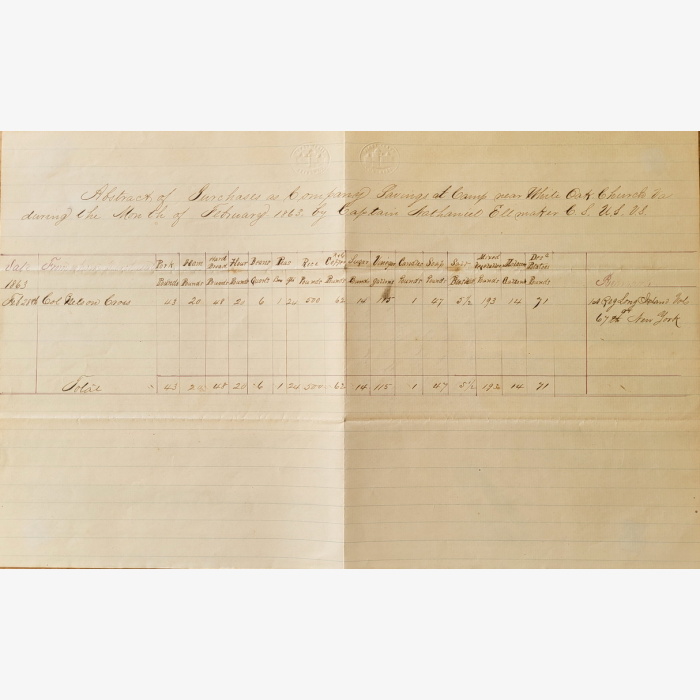 Abstract of Purchases as Company Savings at Camp near White Oak Church Va
during the Month of February 1863. by Captain Nathaniel Ellmaker C. S. U. S. Vs.
Date From Pork Ham Hard Bread Flour Beans Peas Rice Coffee Sugar Vinegar Candles Soap Salt Mixed Vegetables Molasses Potatoes
1863 Pounds Pounds Pounds Pounds Quarts Pounds Pounds Pounds gallons Pounds Pounds Pounds Pounds
Col Nelson Cross 43 20 48 20 6 1 24 500 62 14 115 1 47 5½ 193 14 71 1st Reg Long Island Vols
67th New York
Total 43 20 48 20 6 1 24 500 62 14 115 1 47 5½ 193 14 71